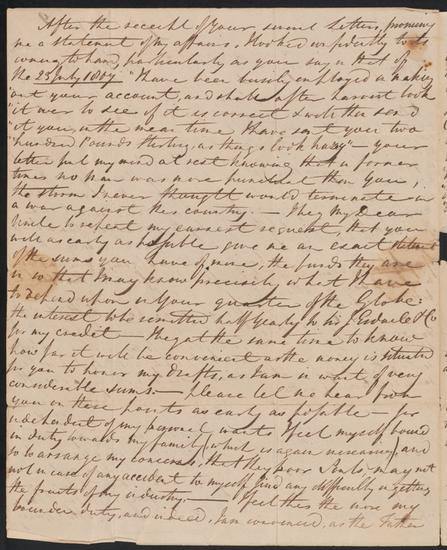 After the receipt of your several Letters, promising
me a statement of my affairs, I looked confidently to its
coming to hand, particularly as you say in that of
the 25 July 1807 "I have been busily employed in making
"out your account, and shall after harvest look
"it over to see if it is correct & with this send
"it you, in the mean time I have sent you two
"hundred Pounds Sterling, as things look hazy" - your
letter put my mind at rest knowing that in former
times no man was more punctual than you,
the storm I never thought would terminate in
a war against this country. - I beg My Dear
Uncle to repeat my earnest request, that you
will as early as possible give me an exact statement
of the sums you have of mine, the funds they are
in so that I may know precisely what I have
to depend upon in your quarter of the Globe:
the interest to be remitted half yearly to & Co
for my credit - I beg at the same time to know
how far it will be convenient as the money is situated
for you to honor my drafts, as I am in want of very
considerable sums - please let me hear from
you on these points as early as possible - for
independent of my personal wants I feel myself bound
in duty towards my family (which is again increasing) and
so to arrange my concerns, that they poor Souls may not
in case of any accident to myself find any difficulty in getting
the fruits of my industry. - I feel this the more my
bounden duty, and indeed, I am convinced, as the Father